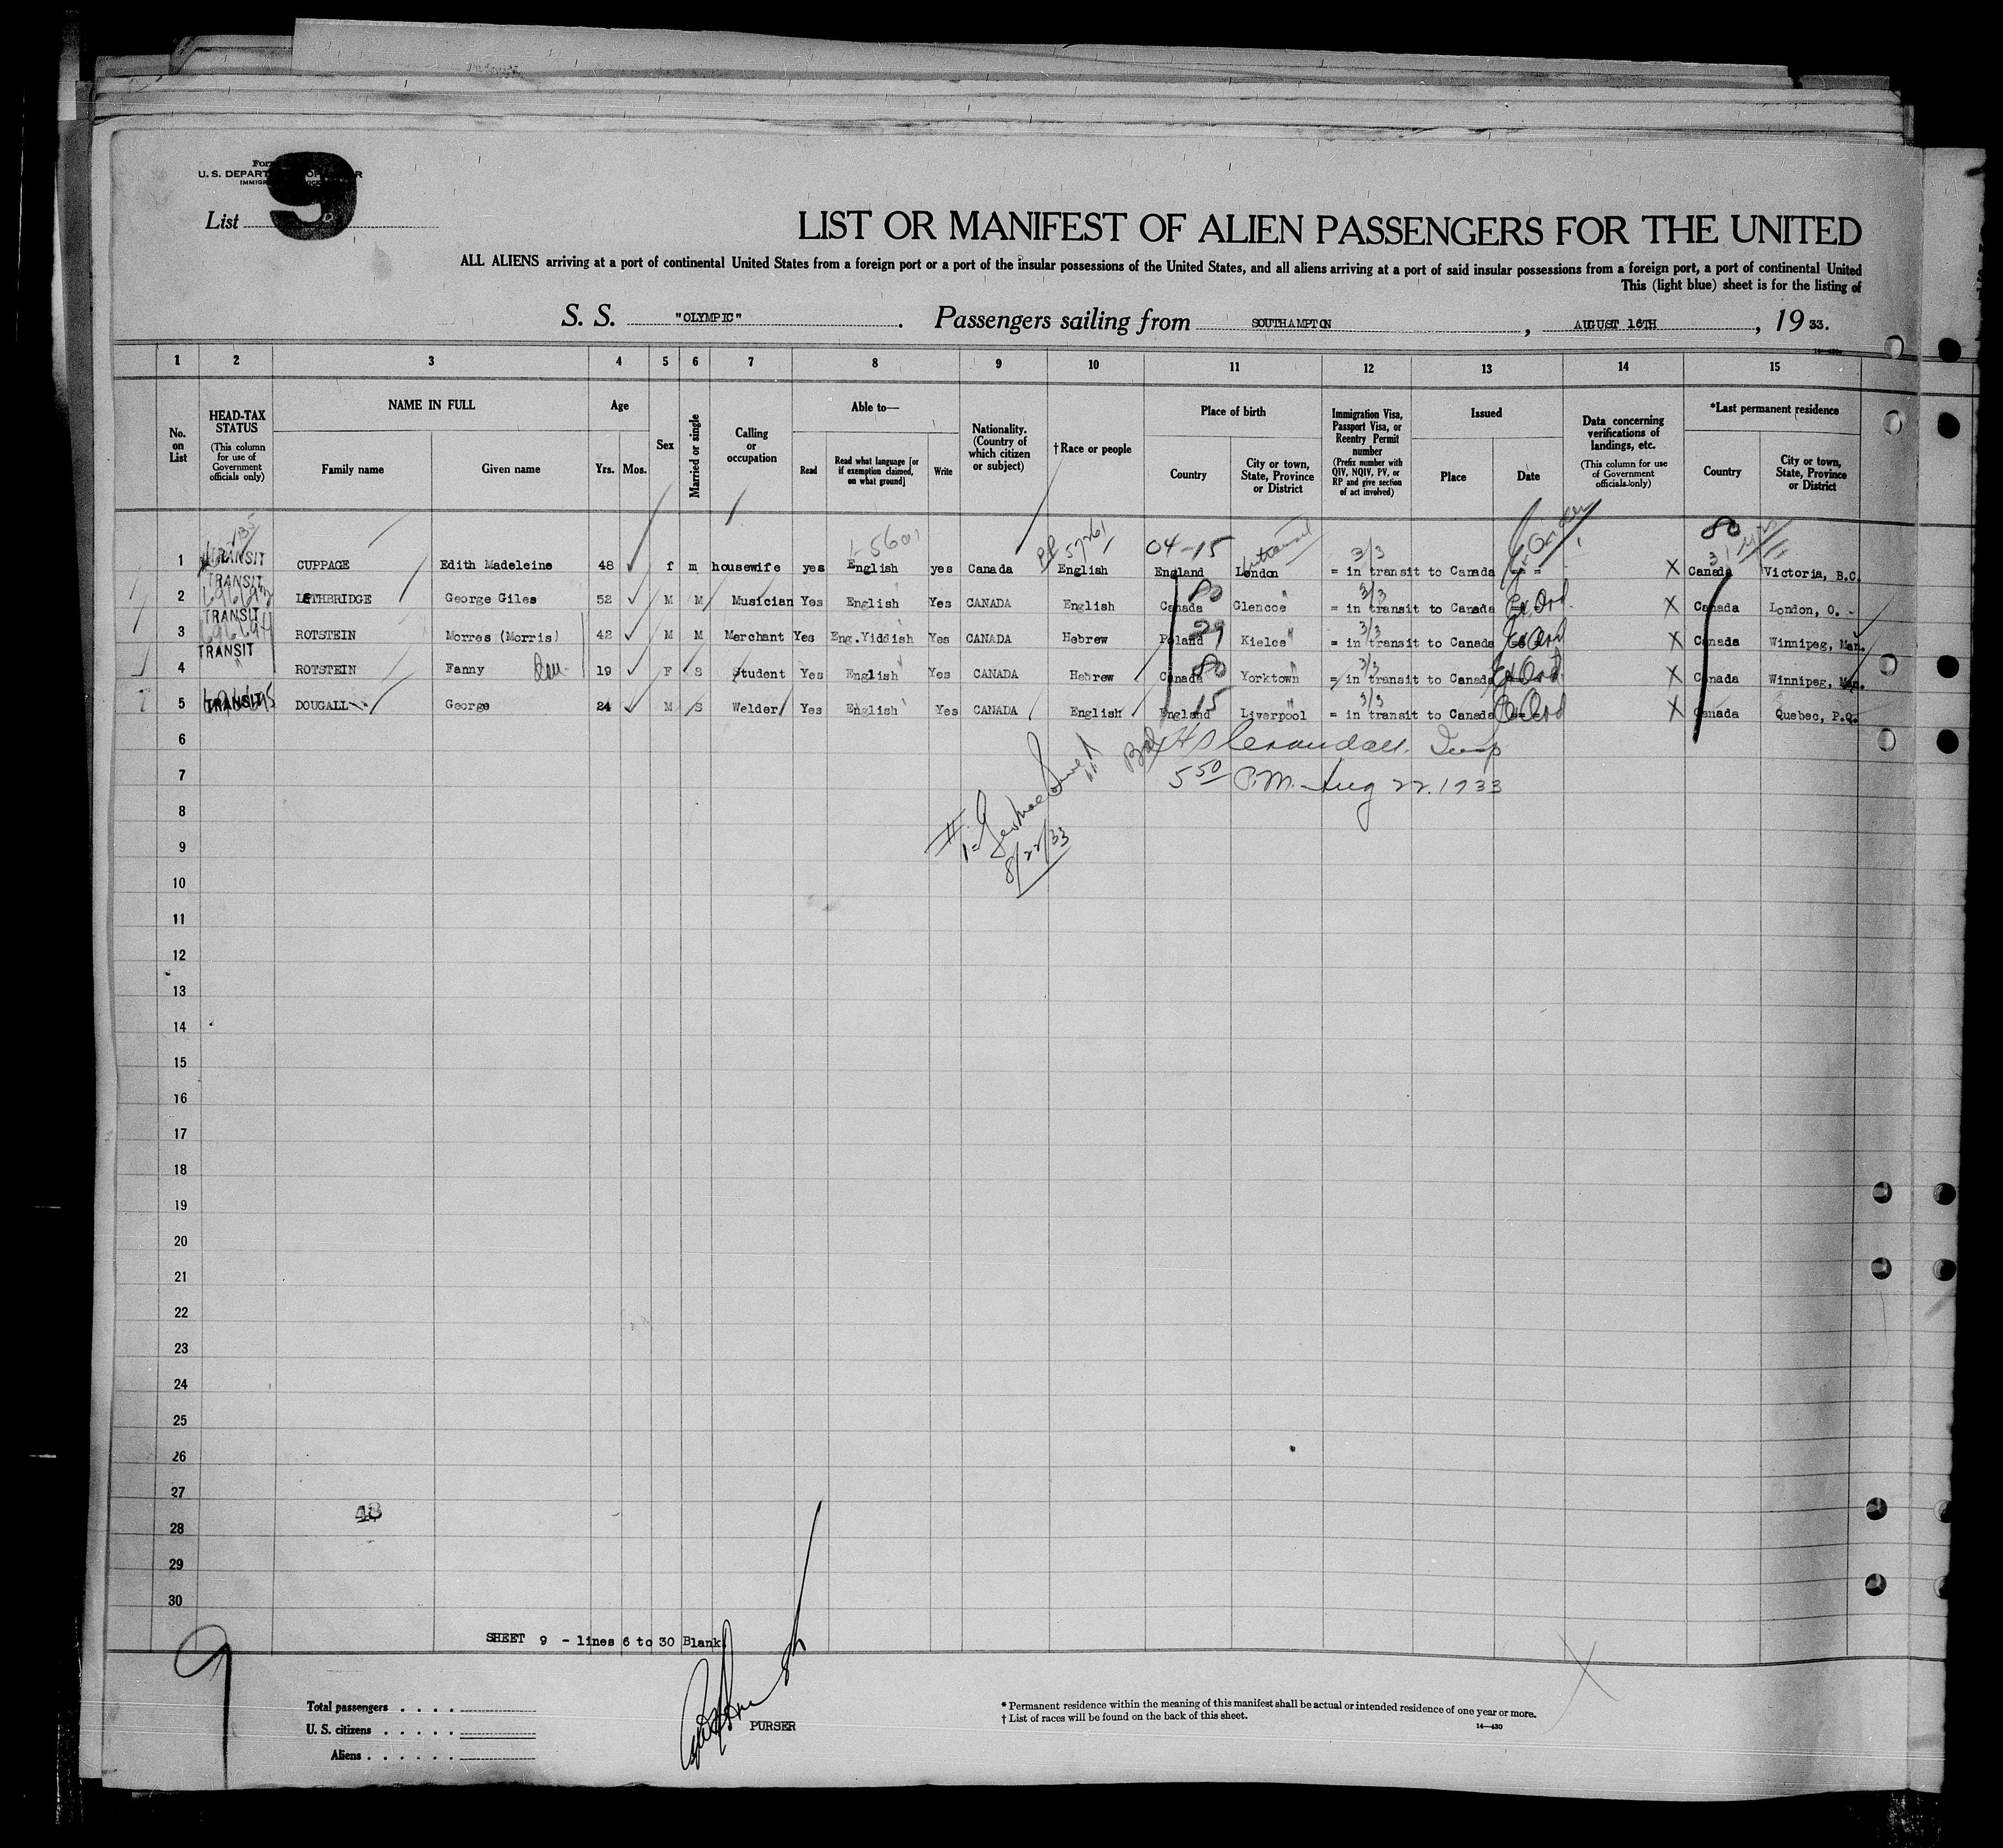 9
U. S. DEPART
List
LIST OR MANIFEST OF ALIEN PASSENGERS FOR THE UNITED
ALL ALIENS arriving at a port of continental United States from a foreign port or a port of the insular possessions of the United States, and all aliens arriving at a port of said insular possessions from a foreign port, a port of continental United
This (light blue) sheet is for the listing of
S. S. "OLYMPIC" . Passengers sailing from SOUTHAMPTON , AUGUST 16TH , 19 33.
1 2 3 4 5 6 7 8 9 10 11 12 13 14 15
No. on List
HEAD-TAX STATUS (This column for use of Government officials only)
NAME IN FULL
Family name Given name
Age
Yrs. Mos.
Sex
Married or single
Calling or occupation
Able to—
Read
Read what language [or if exemption claimed, on what ground]
Write
Nationality. (Country of which citizen or subject)
†Race or people
Place of birth
Country
City or town, State, Province or District
Immigration Visa, Passport Visa, or Reentry Permit number (Prefix number with QIV, NQIV, PV, or RP and give section of act involved)
Issued
Place Date
Data concerning verifications of landings, etc. (This column for use of Government officials only)
*Last permanent residence
Country
City or town, State, Province or District
04-15 3/3 80
1 TRANSIT CUPPAGE Edith Madeleine 48 ✓ f m housewife yes English yes Canada English England London = in transit to Canada = = X Canada Victoria, B.C.
80 3/3
2 TRANSIT LETHBRIDGE George Giles 52 ✓ M M Musician Yes English Yes CANADA English Canada Glencoe = in transit to Canada X Canada London, O.
29 3/3
3 TRANSIT ROTSTEIN Morres (Morris) 42 ✓ M M Merchant Yes Eng.Yiddish Yes CANADA Hebrew Poland Kielce = in transit to Canada X Canada Winnipeg, Man.
80 3/3
4 TRANSIT ROTSTEIN Fanny 19 ✓ F S Student Yes English Yes CANADA Hebrew Canada Yorktown = in transit to Canada X Canada Winnipeg, Man.
15 3/3
5 TRANSIT DOUGALL George 24 ✓ M S Welder Yes English Yes CANADA English England Liverpool = in transit to Canada X Canada Quebec, P.Q.
6
7 5 50 P.M. Aug 22. 1933
8
9 8/22/33
10
11
12
13
14
15
16
17
18
19
20
21
22
23
24
25
26
27
48
28
29
30
SHEET 9 - lines 6 to 30 Blank
9
Total passengers . . . .
U. S. citizens . . . . .
Aliens . . . . . .
PURSER
* Permanent residence within the meaning of this manifest shall be actual or intended residence of one year or more.
† List of races will be found on the back of this sheet.
14—430